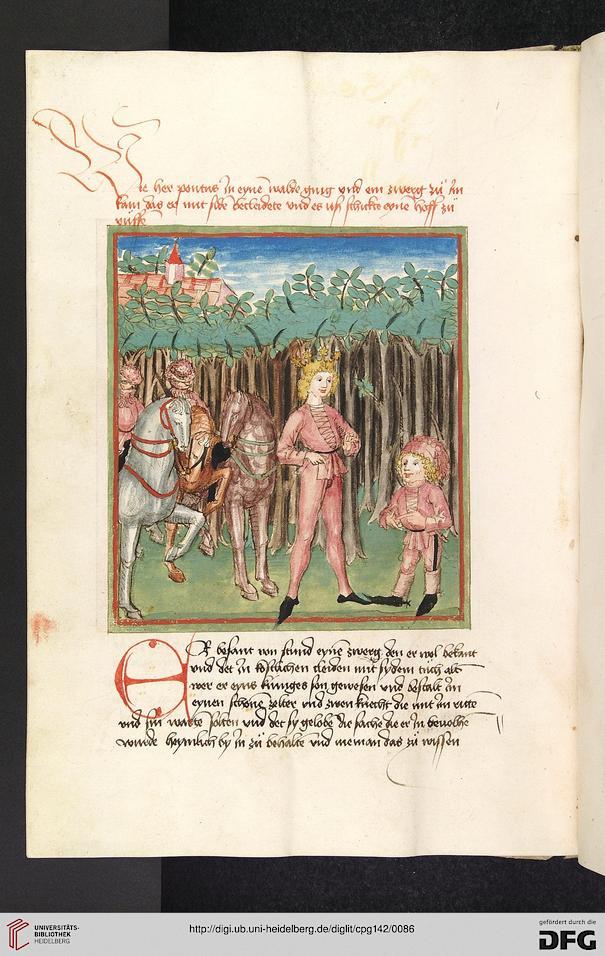 Wie her pontus in eyne walde ging vnd ein zwerg zu im
kam das er mit side becleidete vnd es vß schickte eyne hoff zu
ruffe
Er besant von stund eyne zwerg den er wol bekant
vnd det in kostlichen cleiden mit sydem tuch als
wer er eyns kuniges son gewesen vnd bestalt im
eynen schone zelter vnd zwen knecht die mit im ritte
vnd sin warte solten vnd det sy gelobe die sache die er in bevolhe
wurde heymlich by in zu behalte vnd nieman das zu wissen
UNIVERSITÄTS-
BIBLIOTHEK
HEIDELBERG
http://digi.ub.uni-heidelberg.de/diglit/cpg142/0086
gefördert durch die
DFG